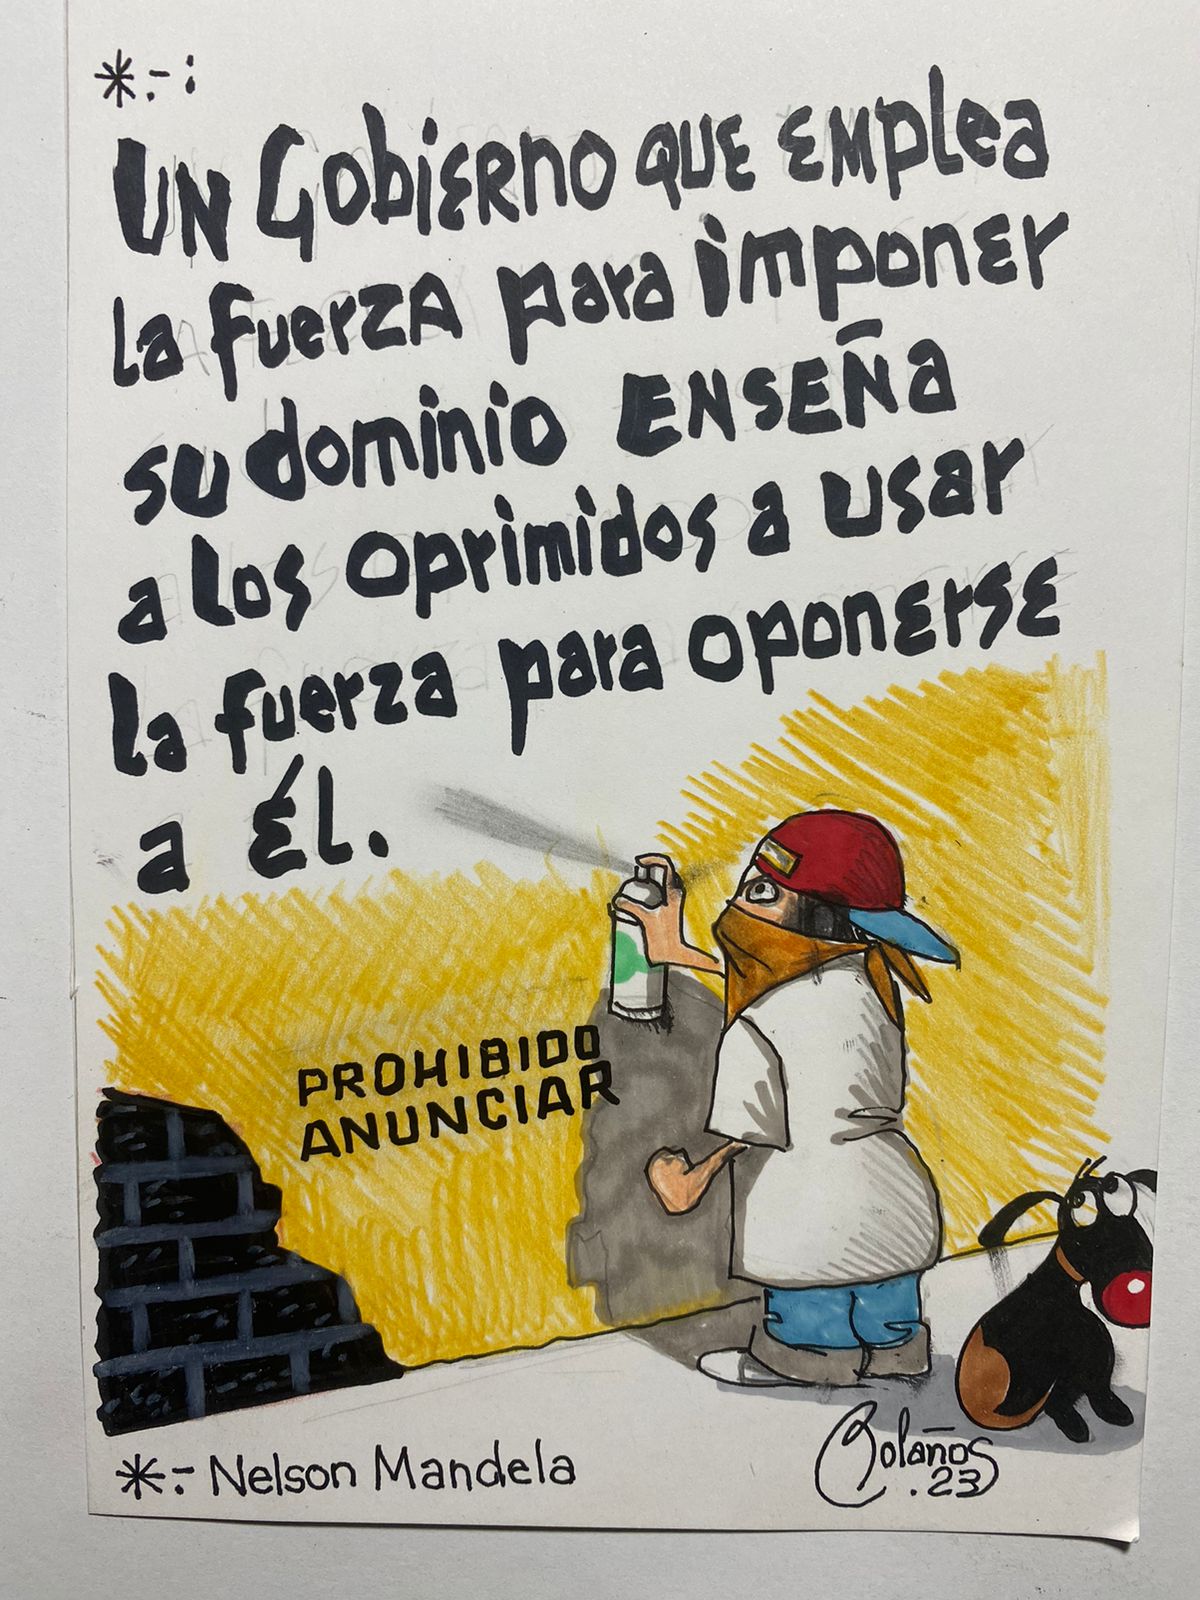 *.-:
UN GobiERno QUE EMplea
la fuerZA para imponer
su dominio ENSEÑa
a los oprimidos a usar
la fuerza para oponerse
a Él.
PROHIBIDO
ANUNCIAR
*.- Nelson Mandela
Bolaños
.23